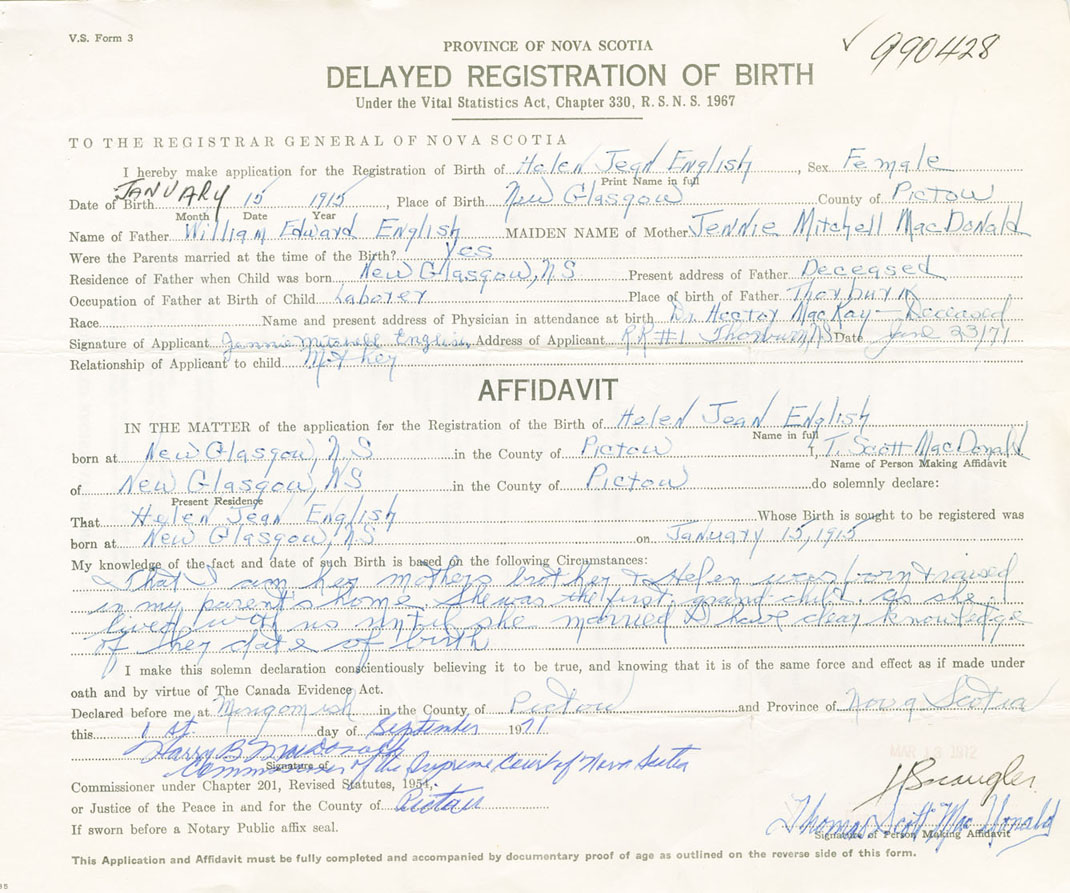 V.S. Form 3
✓ 990428
PROVINCE OF NOVA SCOTIA
DELAYED REGISTRATION OF BIRTH
Under the Vital Statistics Act, Chapter 330, R.S.N.S. 1967
TO THE REGISTRAR GENERAL OF NOVA SCOTIA
I hereby make application for the Registration of Birth of Helen Jean English, Sex Female
Print Name in full
Date of Birth JANUARY 15 1915, Place of Birth New Glasgow County of Pictou
Month Date Year
Name of Father William Edward English MAIDEN NAME of Mother Jennie Mitchell MacDonald
Were the Parents married at the time of the Birth? Yes
Residence of Father when Child was born New Glasgow, NS Present address of Father Deceased
Occupation of Father at Birth of Child Laborer Place of birth of Father Thorburn
Race Name and present address of Physician in attendance at birth Dr Hector MacKay — Deceased
Signature of Applicant Jennie Mitchell English Address of Applicant R.R #1 Thorburn, NS Date June 23/71
Relationship of Applicant to child Mother
AFFIDAVIT
IN THE MATTER of the application for the Registration of the Birth of Helen Jean English
Name in full
born at New Glasgow, N.S in the County of Pictou I, T. Scott MacDonald
Name of Person Making Affidavit
of New Glasgow, NS in the County of Pictou do solemnly declare:
Present Residence
That Helen Jean English Whose Birth is sought to be registered was
born at New Glasgow, NS on January 15, 1915
My knowledge of the fact and date of such Birth is based on the following Circumstances:
That I am her mothers brother & Helen was born & raised
in my parent's home. She was the first grand-child. As she
lived with us until she married I have clear knowledge
of her date of birth
I make this solemn declaration conscientiously believing it to be true, and knowing that it is of the same force and effect as if made under
oath and by virtue of The Canada Evidence Act.
Declared before me at Merigomish in the County of Pictou and Province of Nova Scotia
this 1st day of September 1971
Harry B MacDonald
Signature of
Commissioner of the Supreme Court of Nova Scotia
MAR 13 1972
Commissioner under Chapter 201, Revised Statutes, 1954,
or Justice of the Peace in and for the County of Pictou
If sworn before a Notary Public affix seal.
Thomas Scott MacDonald
Signature of Person Making Affidavit
This Application and Affidavit must be fully completed and accompanied by documentary proof of age as outlined on the reverse side of this form.